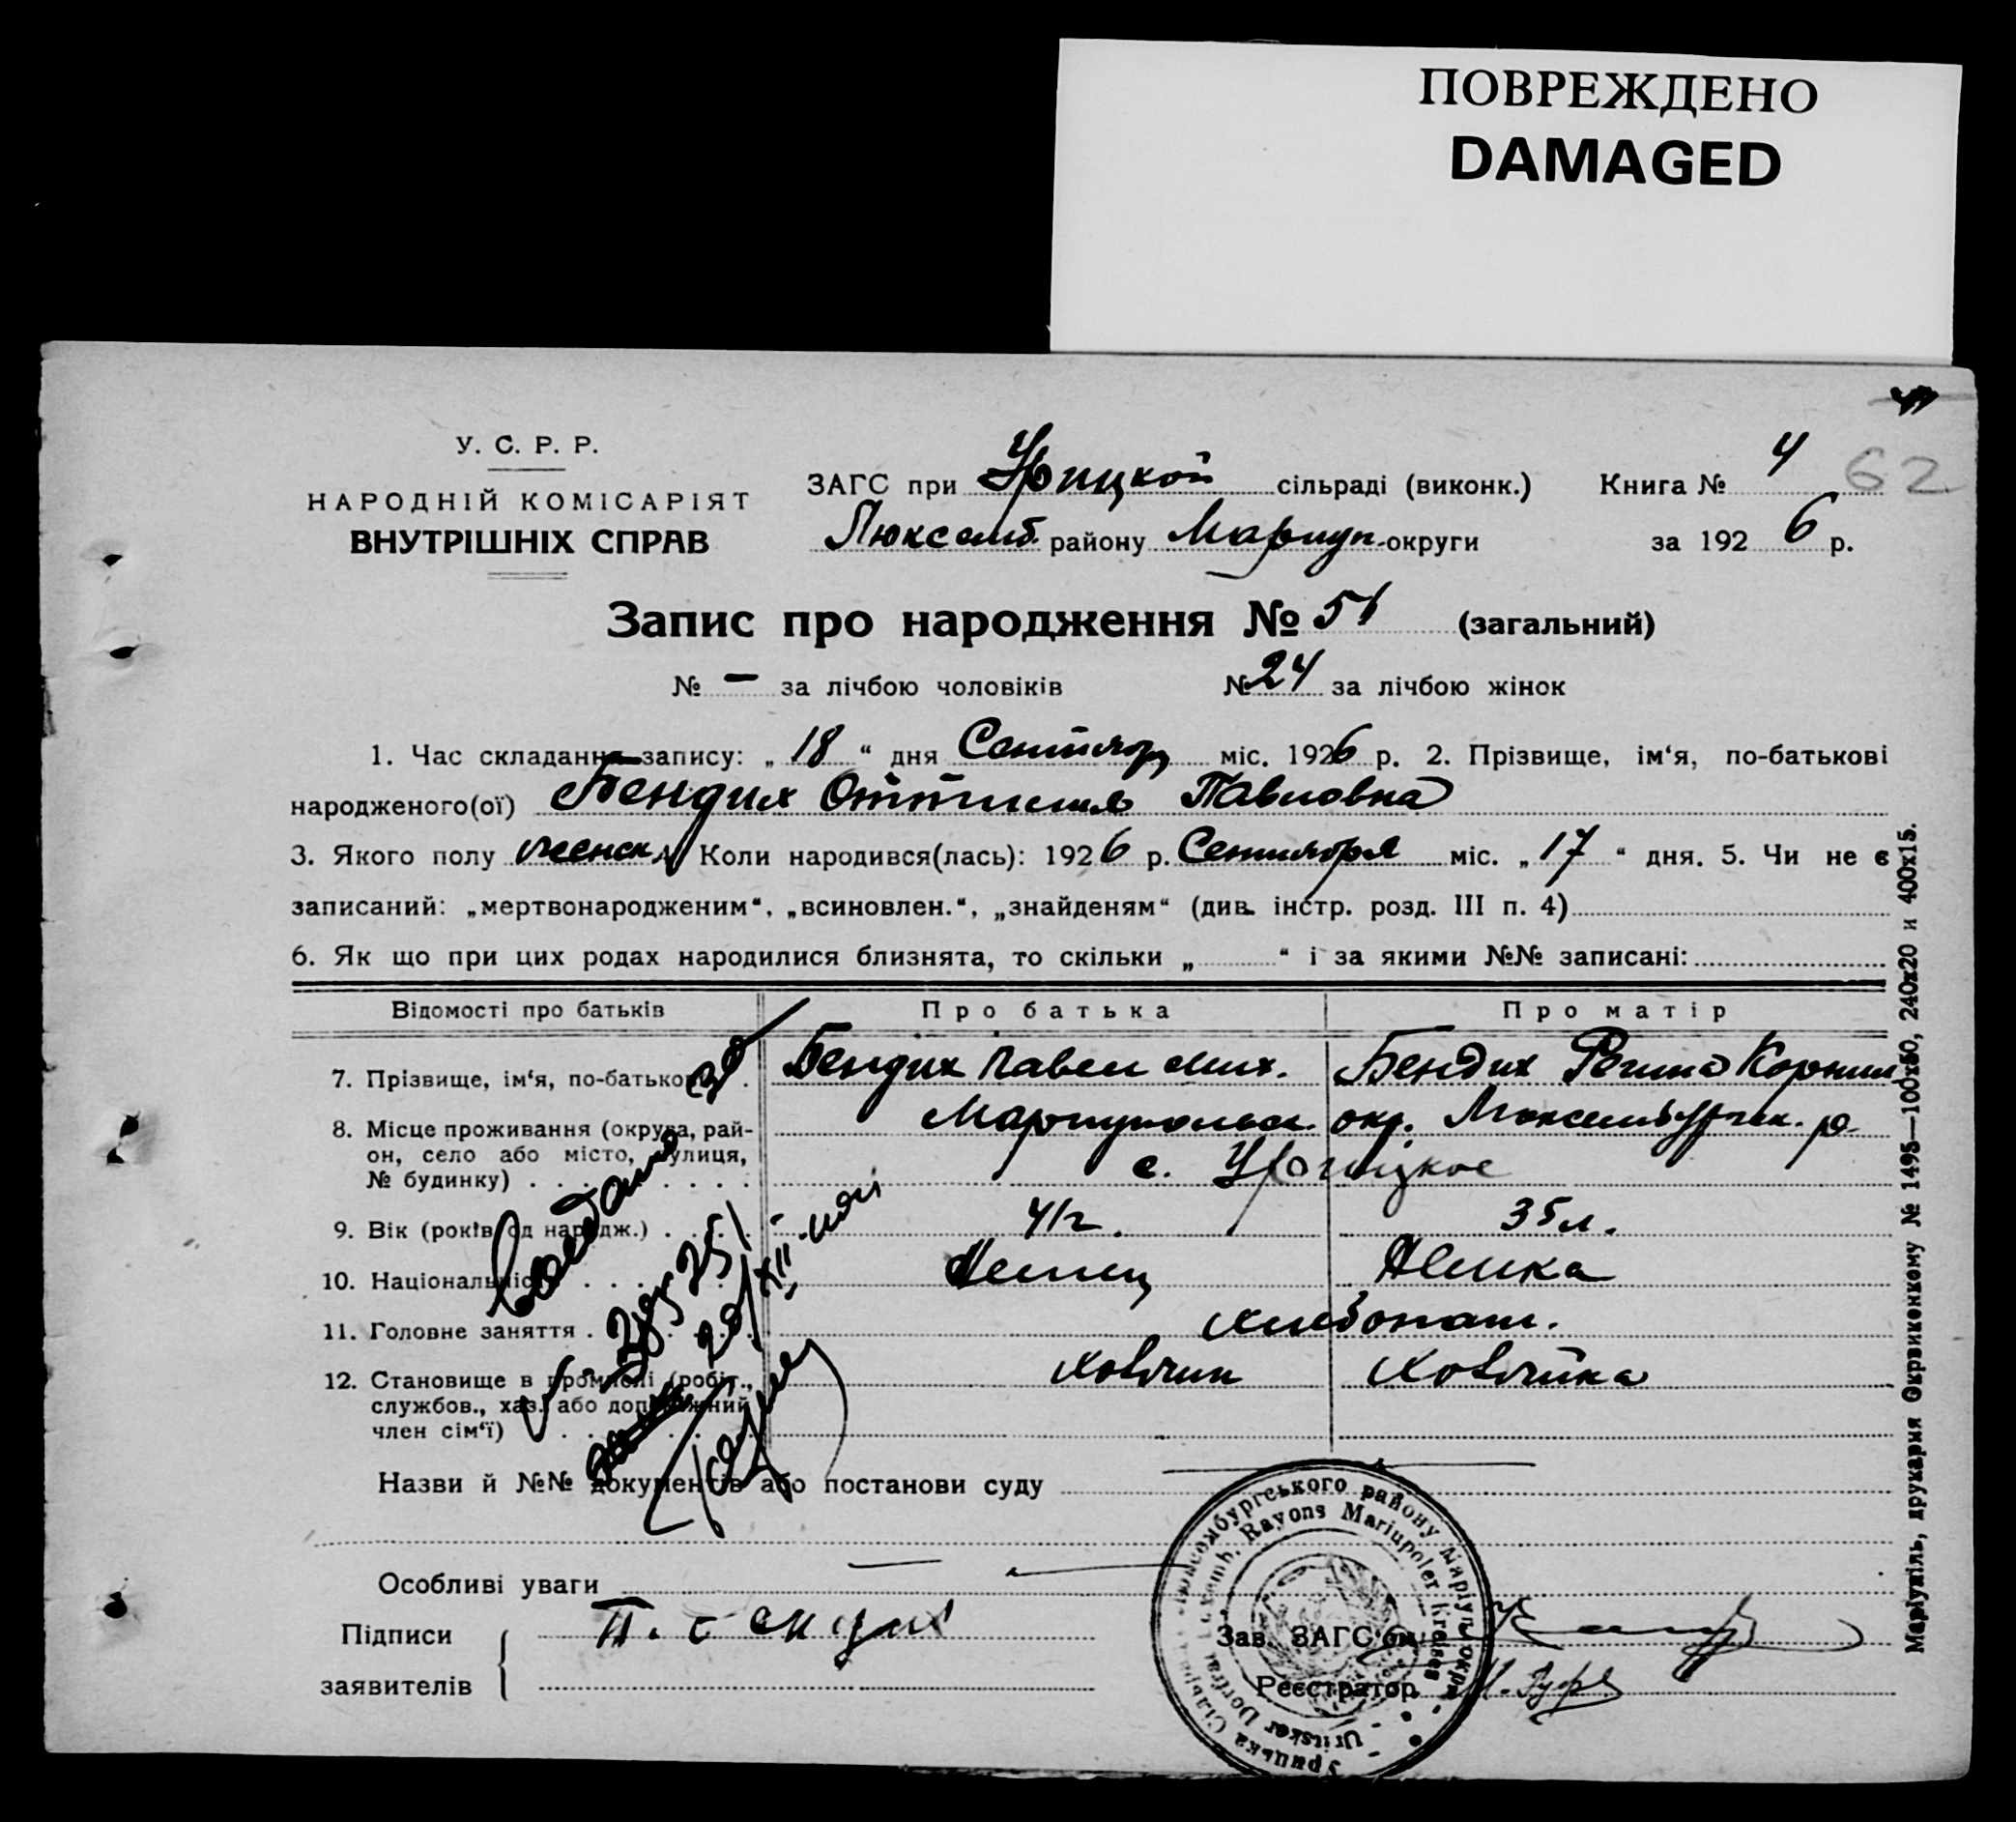 ПОВРЕЖДЕНО
DAMAGED
У. С. Р. Р.
НАРОДНІЙ КОМІСАРІЯТ
ВНУТРІШНІХ СПРАВ
ЗАГС при Урицкой сільраді (виконк.) Книга № 4 62
Люксемб. району Мариуп. округи за 1926 р.
Запис про народження № 51 (загальний)
№ — за лічбою чоловіків № 24 за лічбою жінок
1. Час складання запису: „18“ дня Сентябр міс. 1926 р. 2. Прізвище, ім‘я, по-батькові
народженого(ої) Бендих Оттилия Павловна
3. Якого полу женск Коли народився(лась): 1926 р. Сентября міс. „17“ дня. 5. Чи не є
записаний: „мертвонародженим“, „всиновлен.“, „знайденям“ (див. інстр. розд. III п. 4)
6. Як що при цих родах народилися близнята, то скільки „ “ і за якими №№ записані:
Відомості про батьків Про батька Про матір
7. Прізвище, ім‘я, по-батькові Бендих Павел Мих. Бендих Регина Корнил
8. Місце проживання (округа, рай- Мариупольск. окр. Люксембургск. р.
он, село або місто, вулиця, с. Урицкое
№ будинку)
9. Вік (років од нарадж.) 41 г. 35 л.
10. Національність Немец Немка
11. Головне заняття хлебопаш.
12. Становище в промислі (робіт., хозяин хозяйка
службов., хаз. або допоміжний
член сім‘ї)
Назви й №№ документів або постанови суду
Особливі уваги
Підписи П. Бендих Зав. ЗАГС‘ом
заявителів Реєстратор
Урицька Сільрада Люксембургського району Маріуп. окр.
Uritsker Dorfrat Luxemb. Rayons Mariupoler Kreises
Маріупіль, друкарня Окрвиконкому № 1495—100x50, 240x20 и 400x15.